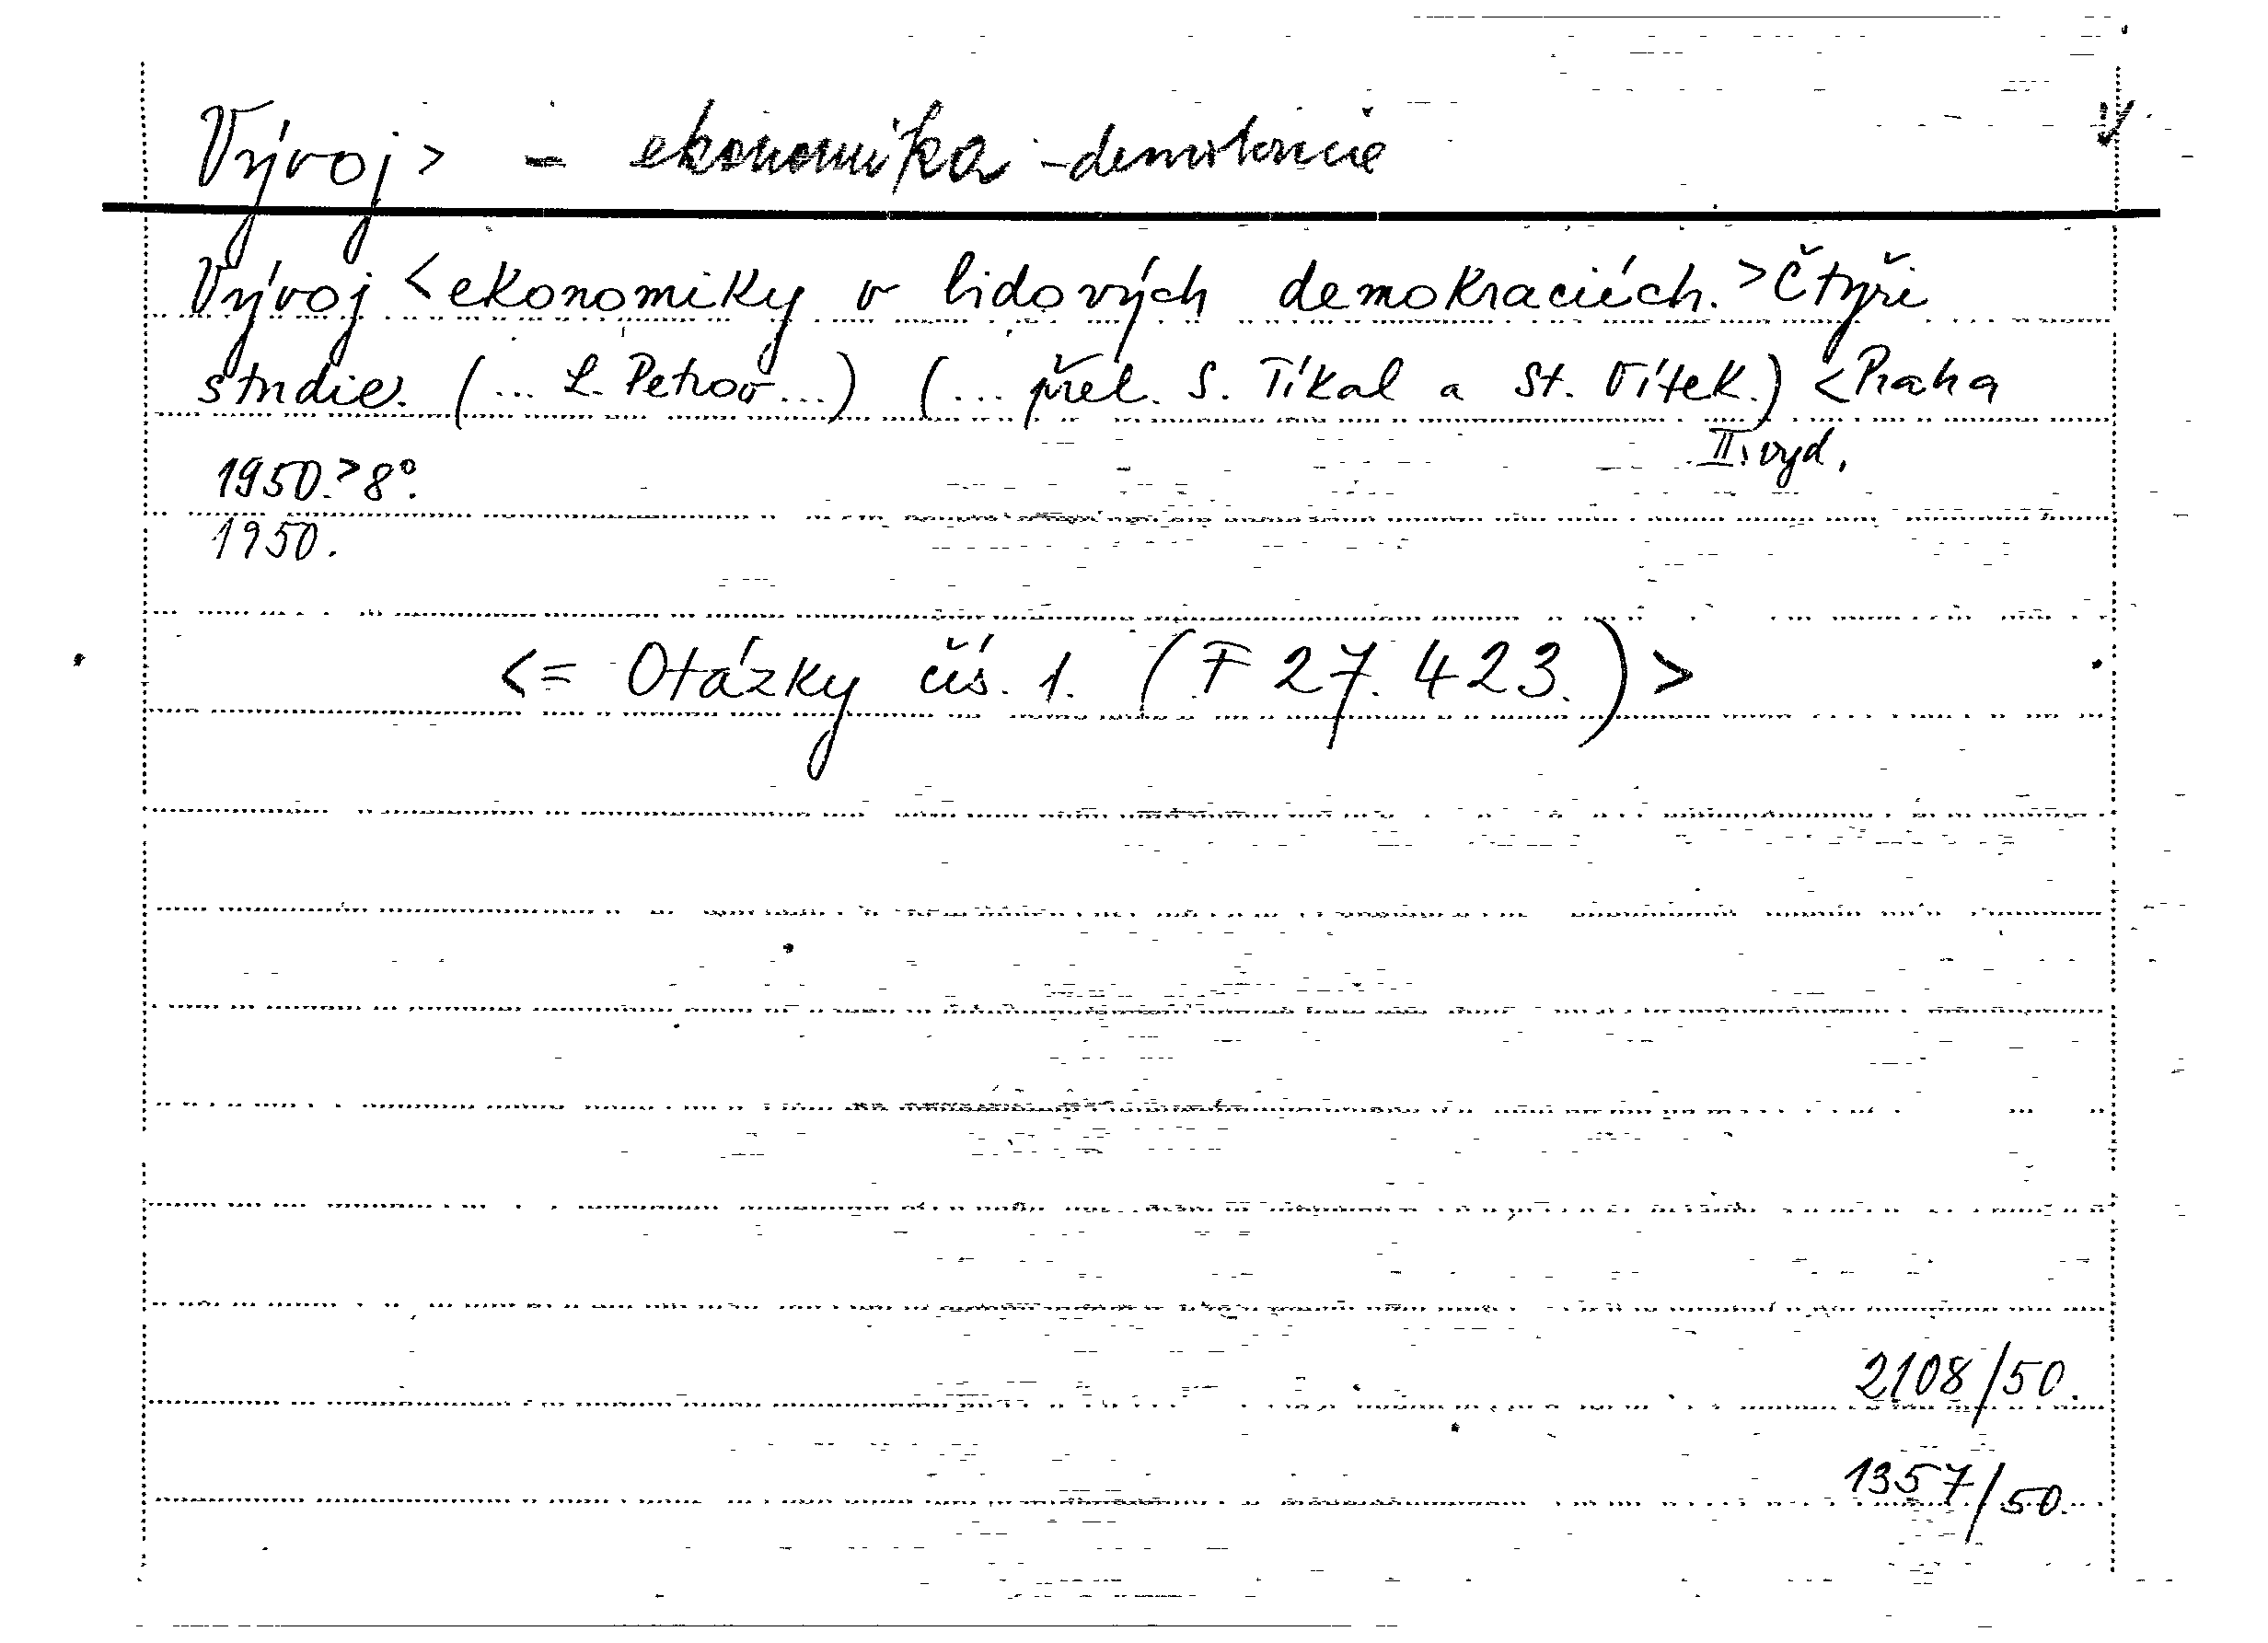 Vývoj> - ekonomika - demokracie
Vývoj <ekonomiky v lidových demokraciích.> Čtyři
studie. (... L. Petrov...) (... přel. S. Tikal a St. Vítek.) <Praha
II. vyd.
1950.> 8°.
1950.
<= Otázky čís. 1. (F 27.423.)>
2108/50.
1357/50.